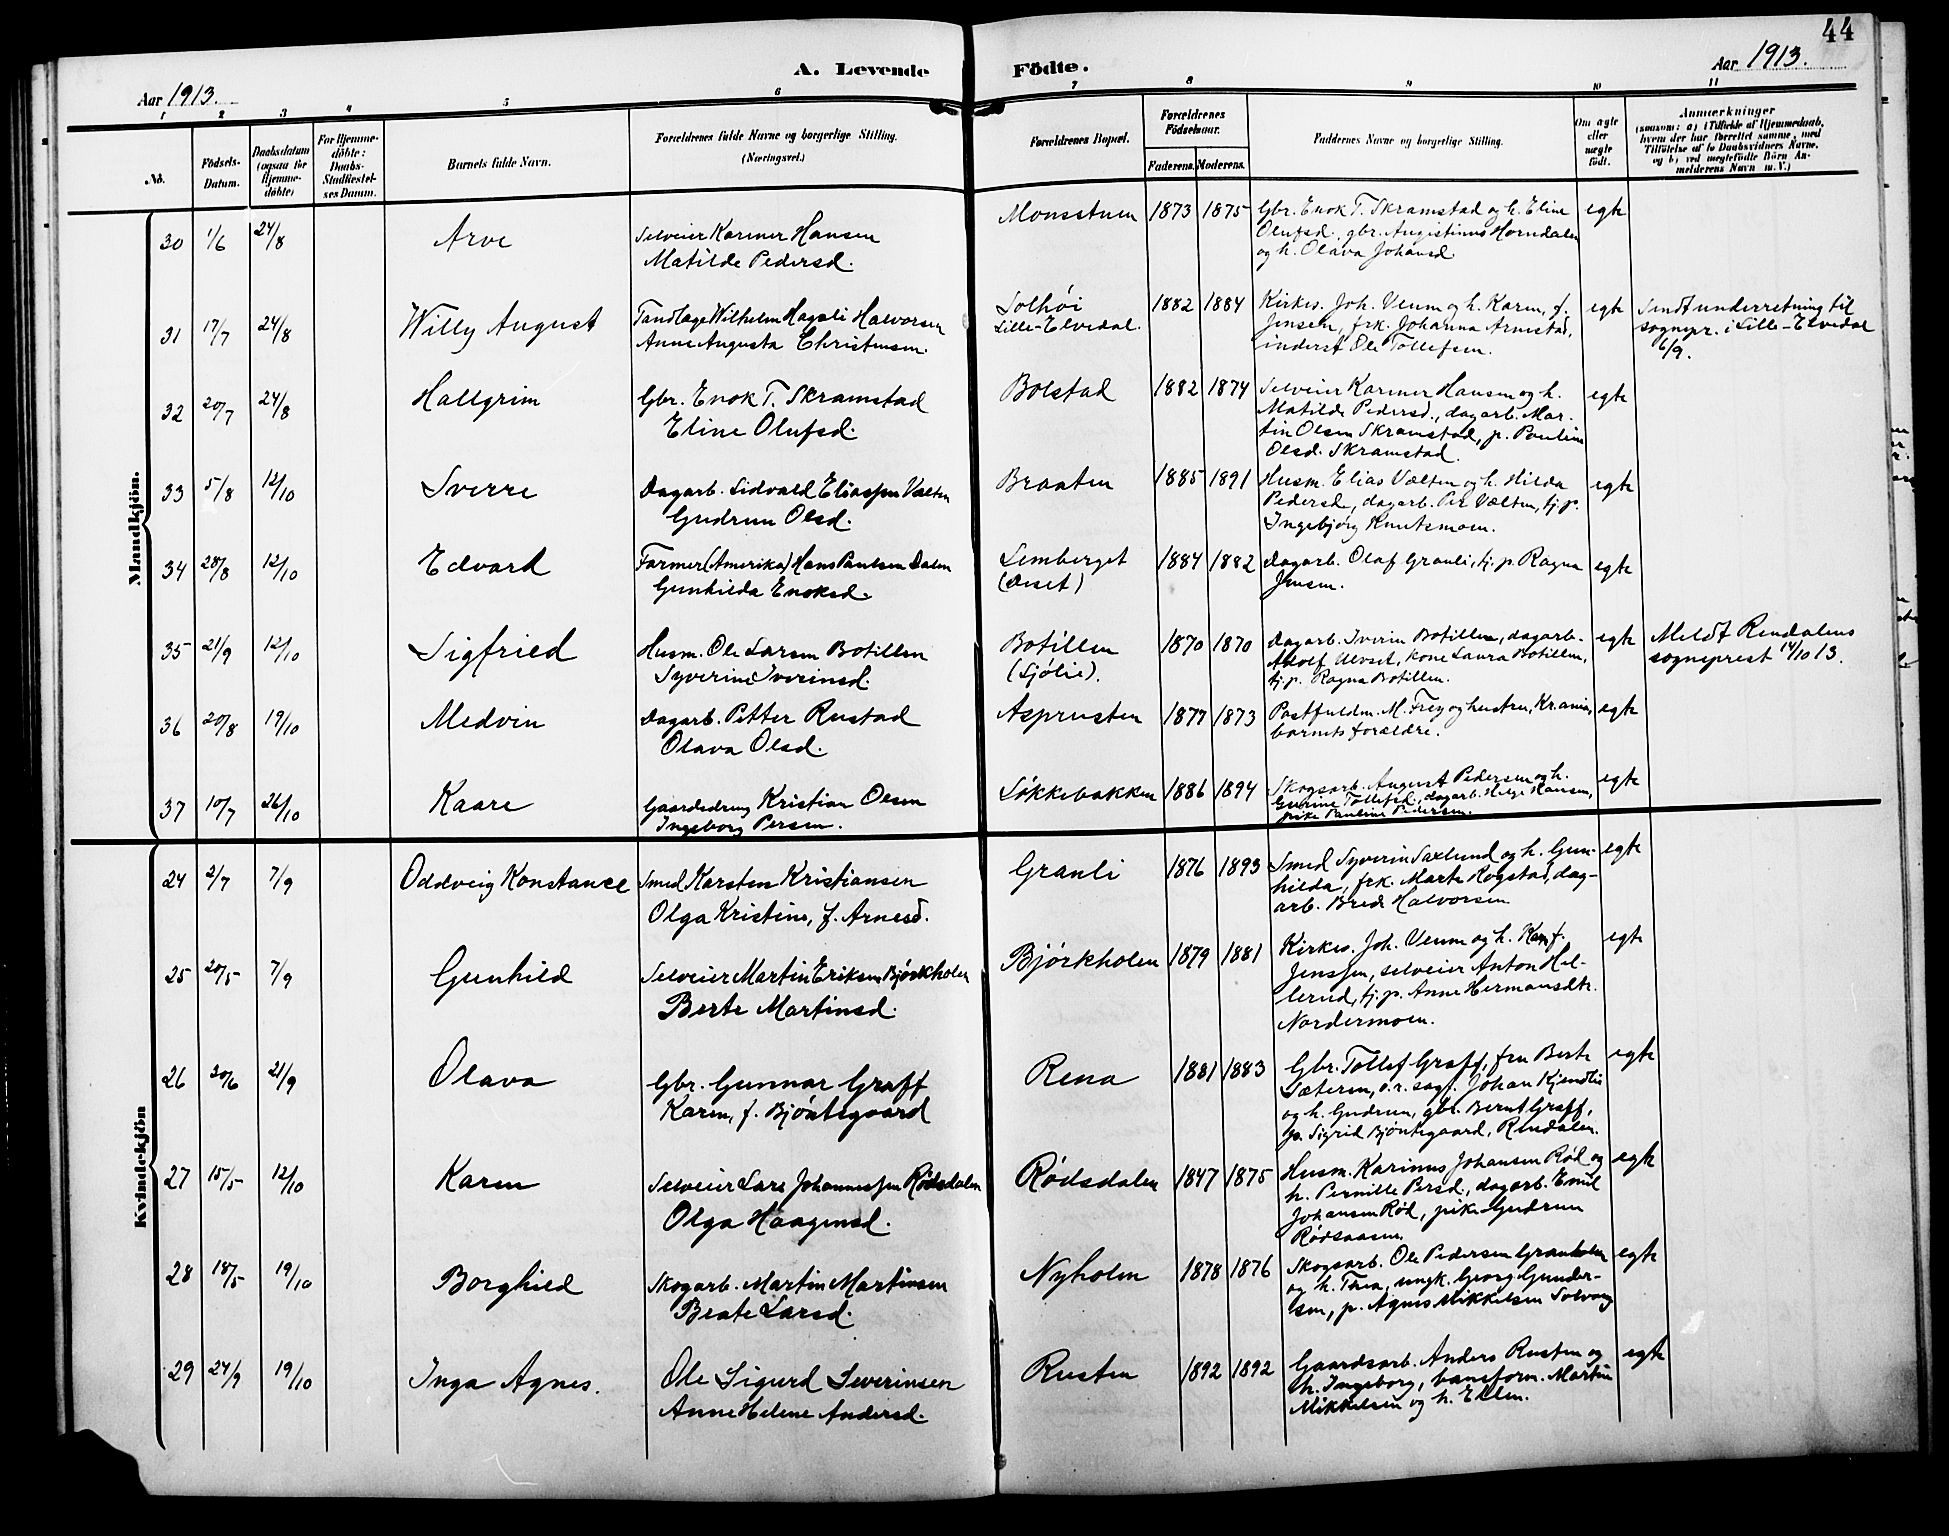 44
A. Levende Födte.
Aar 1913.
Aar 1913.
1 2 3 4 5 6 7 8 9 10 11
No.
Födsels-Datum.
Daabsdatum (ogsaa for Hjemmedöbte)
For Hjemmedöbte: Daabs-Stadfæstelses Datum.
Barnets fulde Navn.
Forældrenes fulde Navne og borgerlige Stilling.
(Næringsvei.)
Forældrenes Bopæl.
Forældrenes Födselsaar.
Faderens. Moderens.
Faddernes Navne og borgerlige Stilling.
Om ægte eller uægte födt.
Anmærkninger
(saasom: a) i Tilfælde af Hjemmedaab, hvem der har forrettet samme, med Tilföielse af to Daabsvidners Navne, og b) ved uægtefödte Börn Anmelderens Navn m.V.)
Mandkjön.
30 1/6 24/8 Arve Selveier Karmer Hansen
Matilde Pedersd.
Monsstuen 1873 1875 Gbr. Enok T. Skramstad og h. Eline
Olufsd., gbr. Augustinus Horndalen
og h. Olava Johansd.
egte
31 17/7 24/8 Willy August Tandlæge Wilhelm Hagali Halvorsen
Anne Augusta Christensen.
Solhöi
Lille-Elvedal.
1882 1884 Kirkes. Joh. Veum og h. Karen, f.
Jensen, frk. Johanna Arnestad,
inderst Ole Tollefsen.
egte Sendt underretning til
sognepr. i Lille-Elvedal
6/9.
32 20/7 24/8 Hallgrim Gbr. Enok T. Skramstad
Eline Olufsd.
Bolstad 1882 1874 Selveier Karmer Hansen og h.
Matilde Pedersd., dagarb. Mar-
tin Olsen Skramstad, p. Pauline
Olsd. Skramstad.
egte
33 5/8 12/10 Sverre Dagarb. Sidvald Eliassen Vælten
Gudrun Olsd.
Braaten 1885 1891 Husm. Elias Vælten og h. Hilda
Pedersd., dagarb. Per Vælten, tj.p.
Ingebjörg Knutsmoen.
egte
34 28/8 12/10 Edvard Farmer (Amerika) Hans Paulsen Dalen
Gunhilda Enoksd.
Lemberget
(Deset)
1884 1882 Dagarb. Olaf Granli, tj.p. Ragna
Jensen.
egte
35 21/9 12/10 Sigfried Husm. Ole Larsen Botillen
Syverine Iverinsd.
Botillen
(Sjölie).
1870 1870 Dagarb. Iverin Botillen, dagarb.
Adolf Ulvset, kone Laura Botillen,
tj.p. Ragna Botillen.
egte Meldt Rendalens
sogneprest 14/10 13.
36 20/8 19/10 Medvin Dagarb. Petter Rustad
Olava Olsd.
Asprusten 1877 1873 Postfuldm. M. Frey og hustru, Kr.ania,
barnets forældre.
egte
37 10/7 26/10 Kaare Gaardsdreng Kristian Olsen
Ingeborg Persen.
Lökkebakken 1886 1894 Skogsarb. August Pedersen og h.
Gurine Tollefsd., dagarb. Helge Hansen,
pike Pauline Pedersen.
egte
Kvindekjön
24 2/7 7/9 Oddveig Konstance Smed Karsten Kristiansen
Olga Kristine, f. Arnesd.
Granli 1876 1893 Smed Syverin Saxlund og h. Gun-
hilda, frk. Marta Hogstad, dag-
arb. Brede Halvorsen
egte
25 20/5 7/9 Gunhild Selveier Martin Eriksen Björkholen
Berte Martinsd.
Björkholen 1879 1881 Kirkes. Joh. Veum og h. Karen f.
Jenssen, selveier Anton Hol-
lerud, tj.p. Anne Hermansdtr.
Nordermoen.
egte
26 20/6 21/9 Olava Gbr. Gunnar Graff
Karen, f. Bjöntegaard
Rena 1881 1883 Gbr. Tollef Graff, fru Berte
Sæteren, o.r. sagf. Johan Kjendlie
og h. Gudrun, gbr. Bernt Graff,
p. Sigrid Bjöntegaard, Rendalen.
egte
27 15/5 12/10 Karen Selveier Lars Johannessen Rödsdalen
Olga Haagensd.
Rödsdalen 1847 1875 Husm. Karinus Johansen Röd og
h. Pernille Persd., dagarb. Emil
Johansen Röd, pike Gudrun
Rödsaasen.
egte
28 18/5 19/10 Borghild Skogarb. Martin Martinsen
Beate Larsd.
Nyholen 1878 1876 Skogsarb. Ole Pedersen Granholen
og h. Thea, ungk. Georg Gunder-
sen, p. Agnes Mikkelsen Solvang
egte
29 24/9 19/10 Inga Agnes. Ole Sigurd Severinsen
Anne Helene Andersd.
Rusten 1892 1892 Gaardsarb. Anders Rusten og
h. Ingeborg, baneform. Martin
Mikkelsen og h. Ellen.
egte